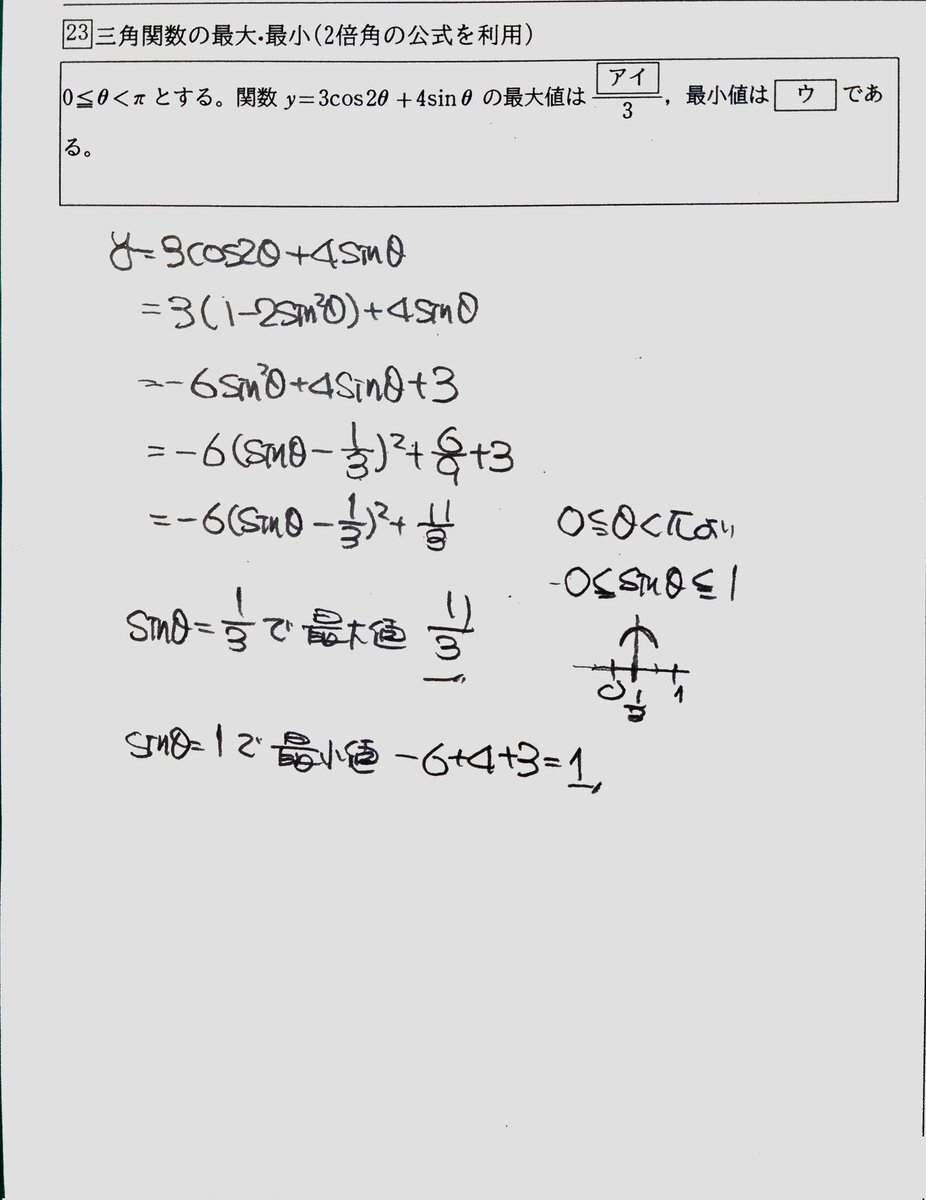 23 三角関数の最大・最小(2倍角の公式を利用)
0≦θ<π とする。関数 y=3cos2θ+4sinθ の最大値は アイ/3, 最小値は ウ であ
る。
y=3cos2θ+4sinθ
=3(1-2sin²θ)+4sinθ
=-6sin²θ+4sinθ+3
=-6(sinθ-1/3)²+6/9+3
=-6(sinθ-1/3)²+11/3
0≦θ<πより
0≦sinθ≦1
0 1/3 1
sinθ=1/3で 最大値 11/3
sinθ=1で 最小値 -6+4+3=1